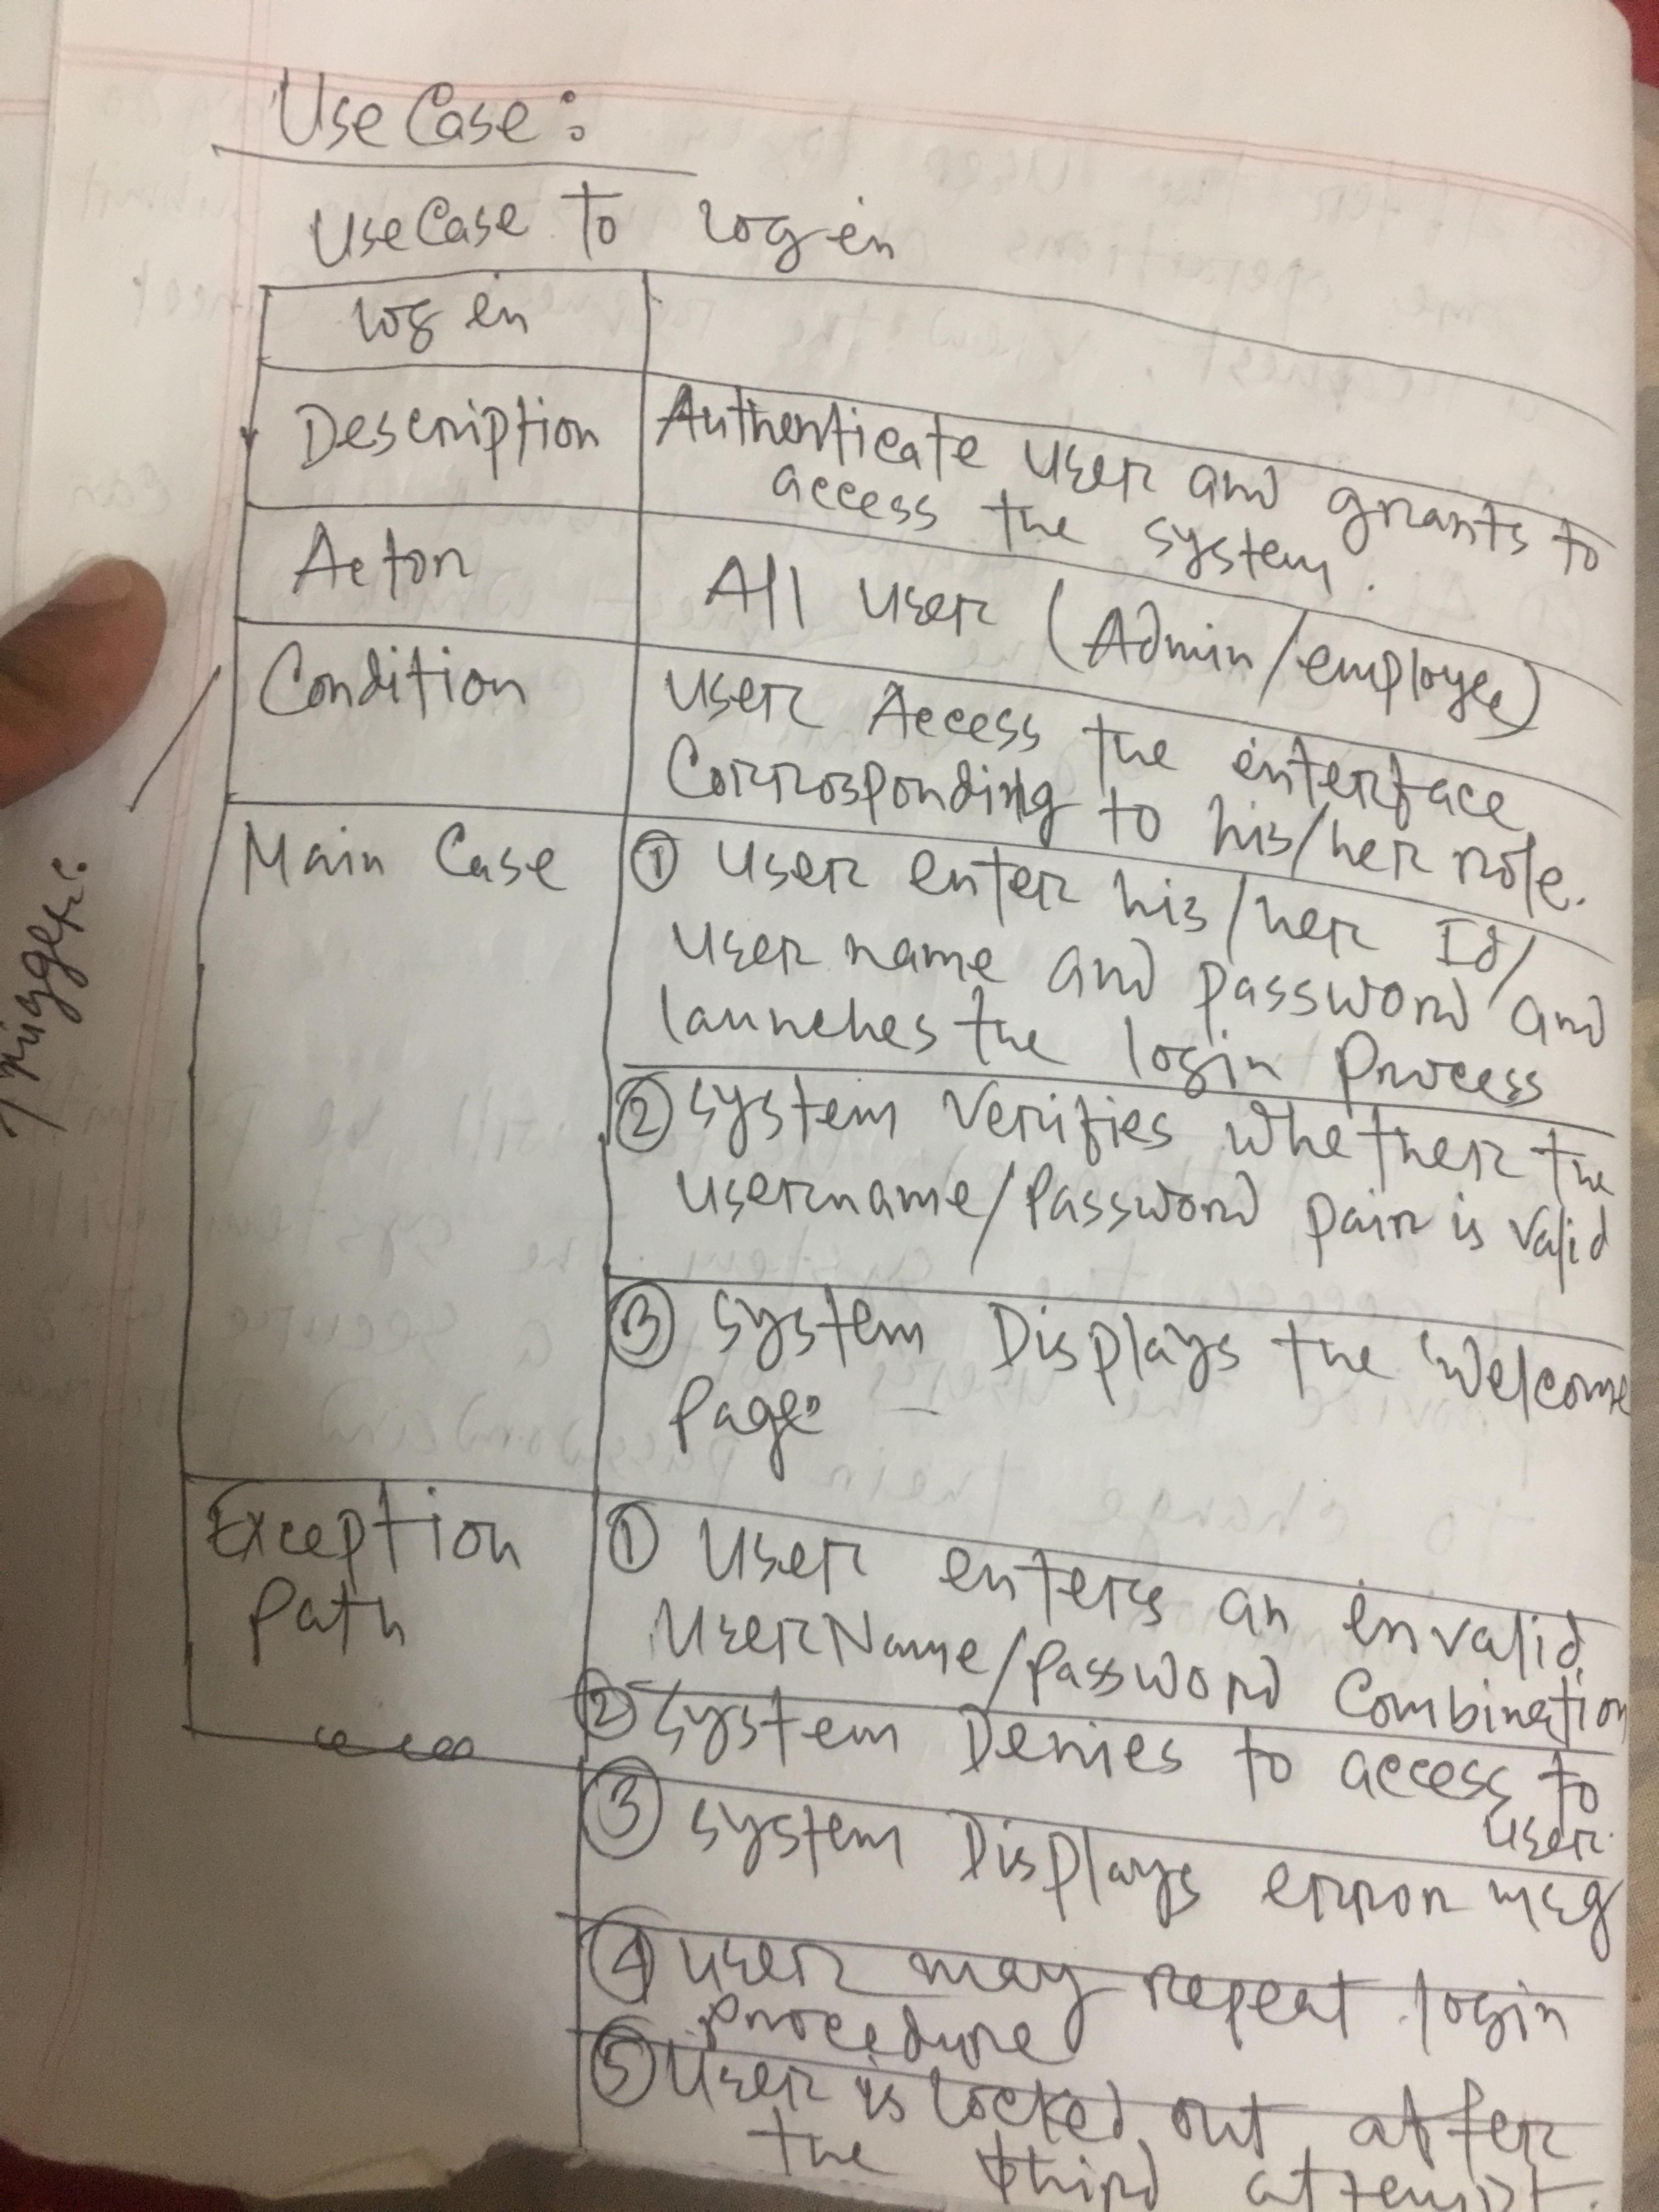 Use Case:
Use Case To log in
log in
Description
Authenticate user and grants to
access the system.
Actor
All user (Admin/employee)
Condition
User Access the interface
Corrosponding to his/her role.
Main Case
① User enter his/her Id/
User name and password and
launches the login process
② System Verifies whether the
username/Password pair is valid
③ System Displays the "Welcome
Page"
Exception
Path
① User enters an invalid
UserName/password Combination
② System Denies to access to
user.
③ System Displays error msg
④ User may repeat login
procedure
⑤ User is locked out after
the third attempt.
Trigger: